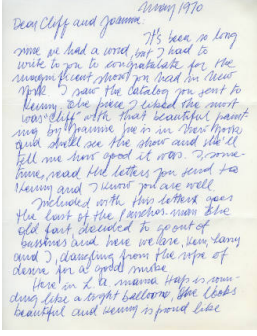 May 1970
Dear Cliff and Joanna:
It's been so long
since we had a word, but I had to
write to you to congratulate for the
magnificent show you had in New
York. I saw the catalog you sent to
Henny. The piece I liked the most
was "Cliff" with that beautiful paint
ing by Joanna. She is in New York
and shall see the show and she'll
tell me how good it was. I, some-
time, read the letters you send to
Henny and I know you are well.
Included with this letter goes
the last of the
old fart, decided to go out of
bussines and here we are, Ken, Larry
and I, dangling from the rope of
desire for a good smoke.
Here in L.A. mama Haps is roun-
ding like a bright balloon, she looks
beautiful and Henny is proud like